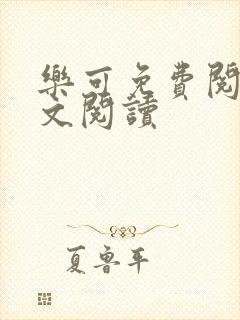 樂可免費閱
文閱讀
夏魯平